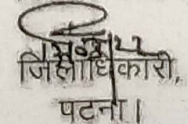 जिलाधिकारी,
पटना।